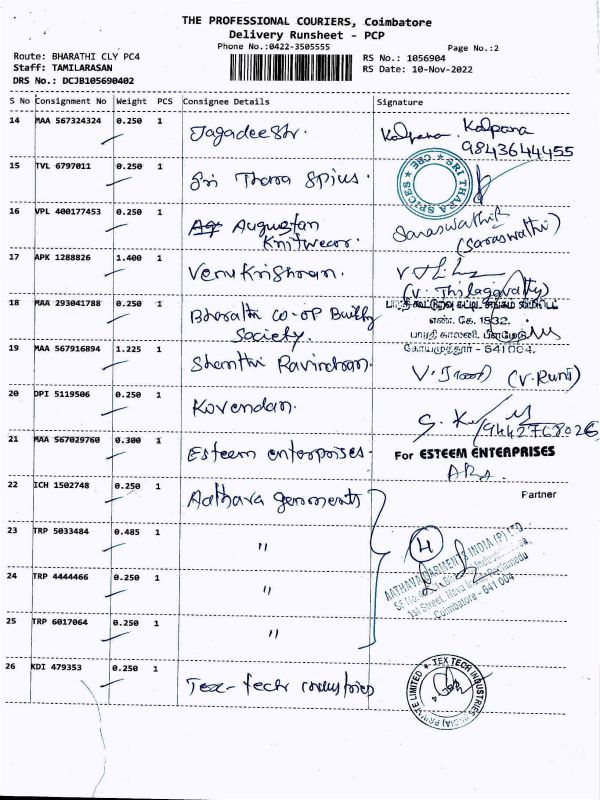 THE PROFESSIONAL COURIERS, Coimbatore
Delivery Runsheet - PCP
Phone No.:0422-3505555
Page No.:2
Route: BHARATHI CLY PC4
Staff: TAMILARASAN
DRS No.: DCJB105690402
RS No.: 1056904
RS Date: 10-Nov-2022
S No Consignment No Weight PCS Consignee Details Signature
14 MAA 567324324 0.250 1 Kalpana. Kalpana
9843644455
15 TVL 6797011 0.250 1 Sri Thara Spices. SRI THARA SPICES * CBE *
16 VPL 400177453 0.250 1 Augustan
Knitwear. Saraswathi
(Saraswathi)
17 APK 1288826 1.400 1 Venu Krishnan.
(V. Thilagavathy)
18 MAA 293041788 0.250 1 Bharathi co-op Builby
Society.
எண். கே. 1832.
பாரதி காலனி, பீளமேடு
கோயமுத்தூர் - 641 004.
19 MAA 567916894 1.225 1 Shanthi Ravindran. V. ராணி (V. Rani)
20 DPI 5119506 0.250 1 Kovendan.
9442768026
21 MAA 567029760 0.300 1 Esteem enterprises. For ESTEEM ENTERPRISES
Partner
22 ICH 1502748 0.250 1 Aathava garments
23 TRP 5033484 0.485 1 " 4
AATHAVA GARMENTS INDIA (P) LTD
1st Street,
Coimbatore - 641 004
24 TRP 4444466 0.250 1 "
25 TRP 6017064 0.250 1 "
26 KDI 479353 0.250 1 Tex-tech industries TEX TECH INDUSTRIES (INDIA) PRIVATE LIMITED